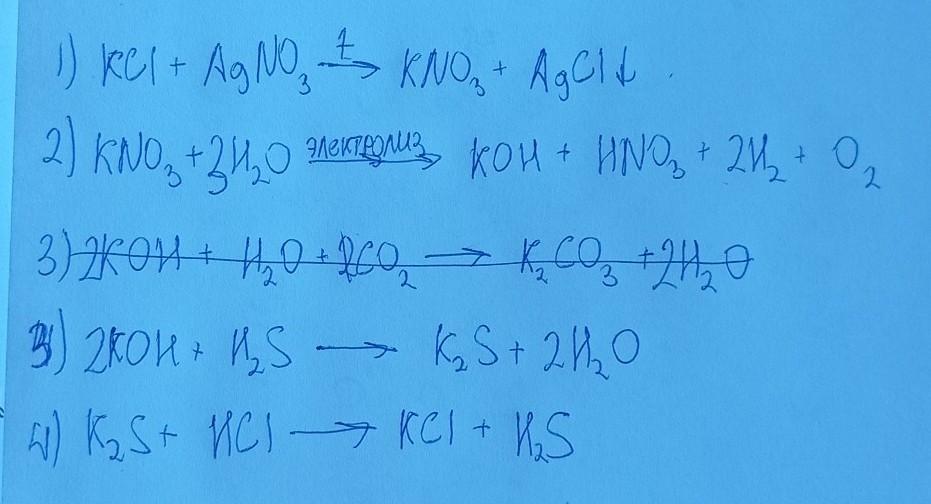 1) KCl + AgNO₃ —t→ KNO₃ + AgCl↓
2) KNO₃ + 3H₂O —электролиз→ KOH + HNO₃ + 2H₂ + O₂
3) 2KOH + H₂O + 2CO₂ → K₂CO₃ + 2H₂O
3) 2KOH + H₂S → K₂S + 2H₂O
4) K₂S + HCl → KCl + H₂S